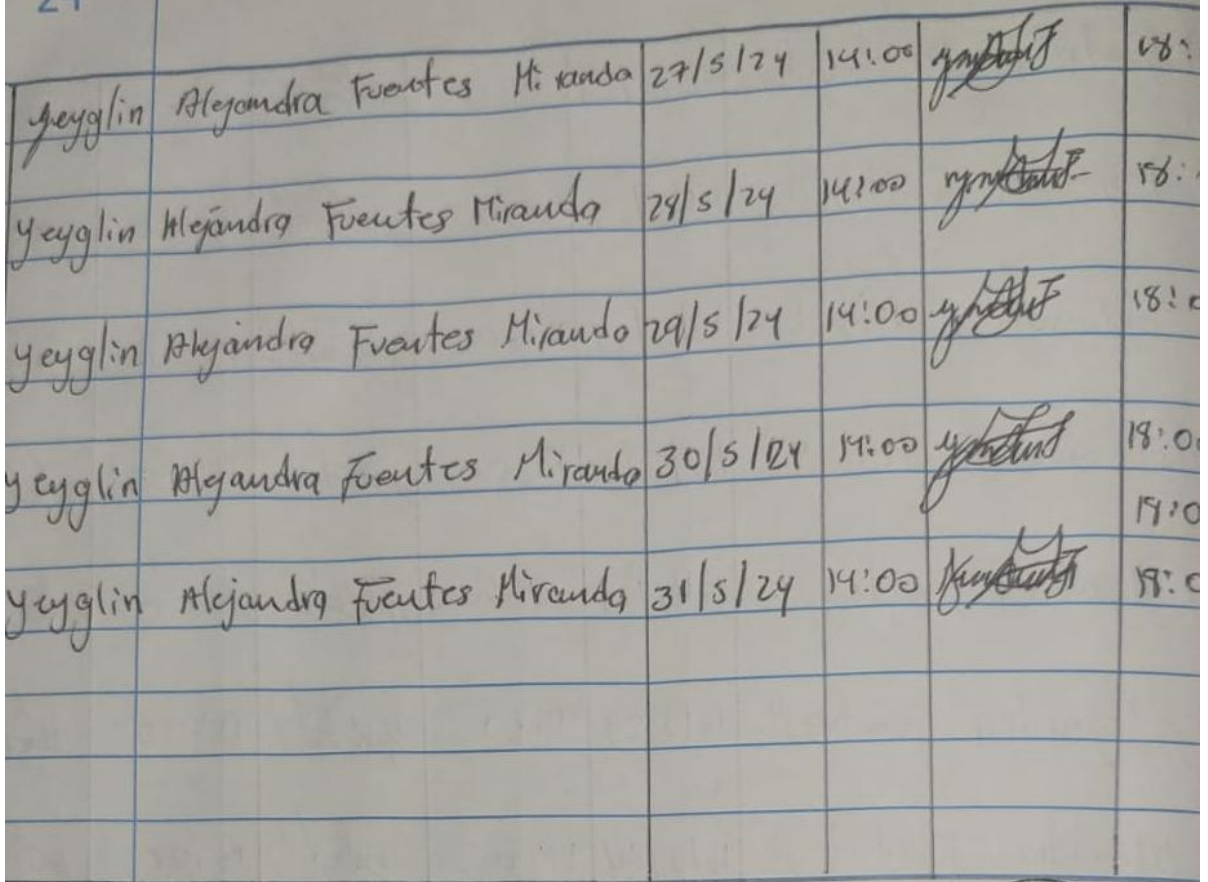 24
Yeyglin Alejandra Fuentes Miranda 27/5/24 14:00 18:
Yeyglin Alejandra Fuentes Miranda 28/5/24 14:00 18:
Yeyglin Alejandra Fuentes Miranda 29/5/24 14:00 18:0
Yeyglin Alejandra Fuentes Miranda 30/5/24 14:00 18:0
18:0
Yeyglin Alejandra Fuentes Miranda 31/5/24 14:00 18:0